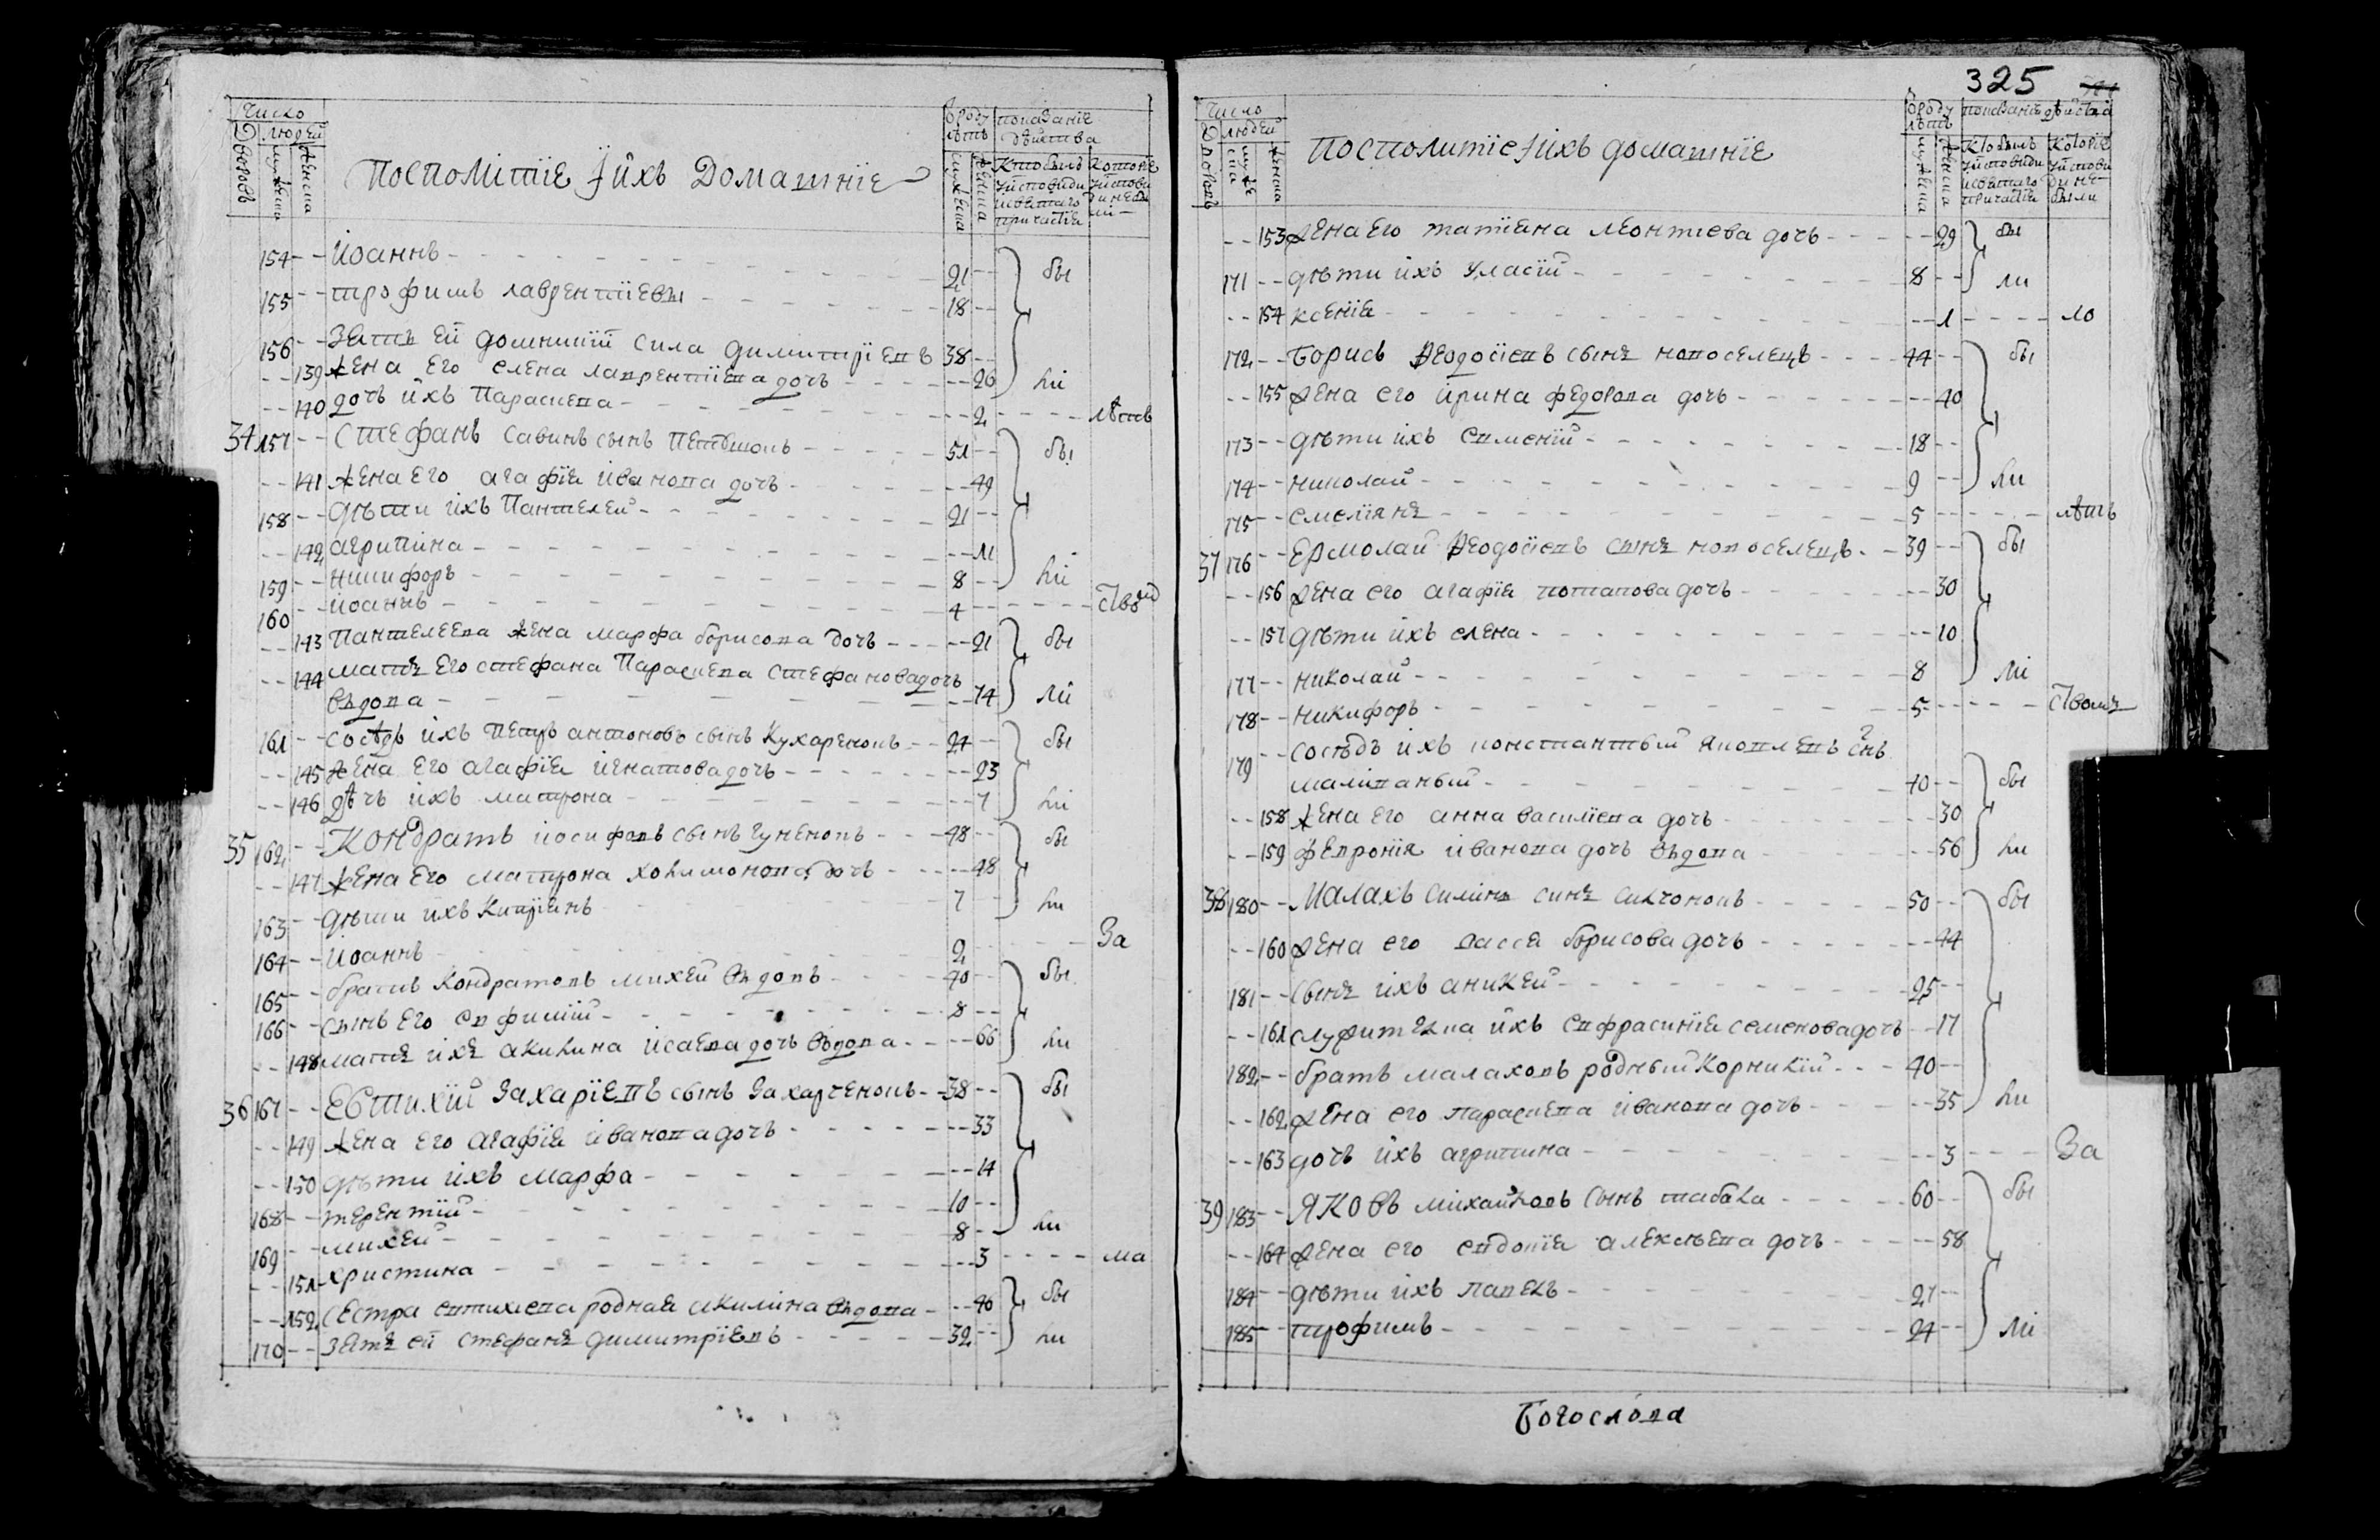 Число
Дворовъ
людей
мужеска
женска
Посполитїе і йхъ домашнїе
ѿроду лѣтъ
показанїе дѣйства
мужеска
женска
Кто былъ у йсповѣди и святаго причастїя
которїе у йсповѣди не были
154 - - йоаннъ - - 21 - - бы
155 - - трофимъ лаврентїевы - - 18 - -
156 - - зять ей домнинїй сила димитрїевъ 38 - -
- - 139 жена его елена лаврентїева дочь - - 26 ли
- - 140 дочь йхъ Параскева - - 2 - - лѣтъ
34 157 - - Стефанъ савинъ сынъ - - 51 - - бы
- - 141 жена его агафїя йванова дочь - - 49
158 - - дѣти йхъ Пантелей - - 21 - -
- - 142 агрипина - - 11
159 - - никифоръ - - 8 - - ли
160 - - йоаннъ - - 4 - -
- - 143 Пантелеева жена марфа борисова дочь - - 21 бы
- - 144 мать его стефана Параскева стефанова дочь
вдова - - 74 ли
161 - - сосѣдъ йхъ Петръ антоновъ сынъ Кухаренокъ - - 24 - - бы
- - 145 жена его агафїя йгнатова дочь - - 23
- - 146 дочь йхъ матрона - - 7 ли
35 162 - - Кондратъ йосифовъ сынъ гуненокъ - - 48 - - бы
- - 147 жена его матрона дочь - - 48
163 - - дѣти йхъ Кипрїянъ 7 - - ли
164 - - йоаннъ 2 - - За
165 - - братъ Кондратовъ михей вдовъ - - 40 - - бы
166 - - сынъ его евфимїй - - 8 - -
- - 148 мать йхъ акилина йсаева дочь вдова - - 66 ли
36 167 - - Евтихїй Захарїевъ сынъ Захарченокъ - - 38 - - бы
- - 149 жена его агафїя йванова дочь - - 33
- - 150 дѣти йхъ марфа - - 14
168 - - терентїй - - 10 - -
169 - - михей - - 8 - - ли
- - 151 христина - - 3 - - ма
- - 152 сестра евтихиева родная акилина вдова - - 40 бы
170 - - зять ей стефанъ димитрїевъ - - 32 - - ли
325
Число
Дворовъ
людей
мужеска
женска
Посполитїе і йхъ домашнїе
ѿроду лѣтъ
показанїе дѣйства
мужеска
женска
Кто былъ у йсповѣди и святаго причастїя
Которїе у йсповѣди не были
- - 153 жена его татїяна леонтїева дочь - - 29 бы
171 - - дѣти йхъ уласїй - - 8 - - ли
- - 154 ксенїя - - 1 - - ло
172 - - Борисъ Ѳеодосїевъ сынъ новоселецъ - - 44 - - бы
- - 155 жена его йрина федорова дочь - - 40
173 - - дѣти йхъ евменїй - - 18 - -
174 - - николай - - 9 - - ли
175 - - емелїянъ - - 5 - - лѣтъ
37 176 - - Ермолай Ѳеодосїевъ сынъ новоселецъ - - 39 - - бы
- - 156 жена его агафїя потапова дочь - - 30
- - 157 дѣти йхъ елена - - 10
177 - - николай - - 8 ли
178 - - никифоръ - - 5 - -
179 - - сосѣдъ йхъ константїй яковлевъ снъ
- - 40 - - бы
- - 158 жена его анна василїева дочь - - 30
- - 159 февронїя йванова дочь вдова - - 56 ли
38 180 - - Малахъ силинъ синъ - - 50 - - бы
- - 160 жена его васса борисова дочь - - 44
181 - - сынъ йхъ аникей - - 25 - -
- - 161 служителка йхъ евфрасинїя семенова дочь - - 17
182 - - братъ малаховъ родный Корникїй - - 40 - -
- - 162 жена его параскева йванова дочь - - 35 ли
- - 163 дочь йхъ агрипина - - 3 - - За
39 183 - - Яковъ михайловъ сынъ табака - - 60 - - бы
- - 164 жена его евдокїя алексѣева дочь - - 58
184 - - дѣти йхъ павелъ - - 27 - -
185 - - трофимъ - - 24 - - ли
Богослова